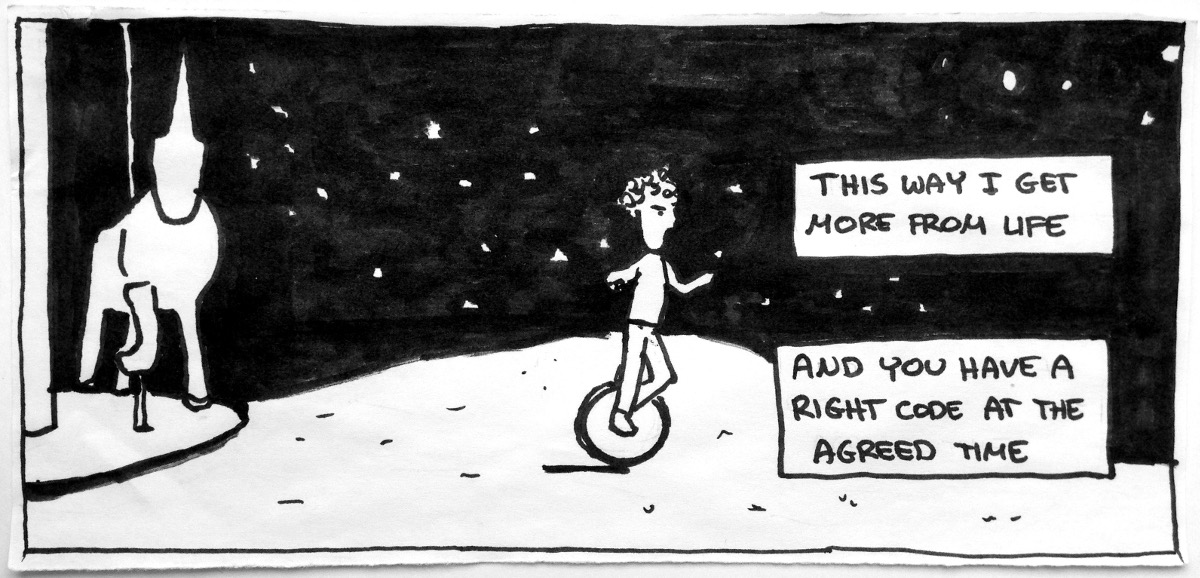 THIS WAY I GET
MORE FROM LIFE
AND YOU HAVE A
RIGHT CODE AT THE
AGREED TIME